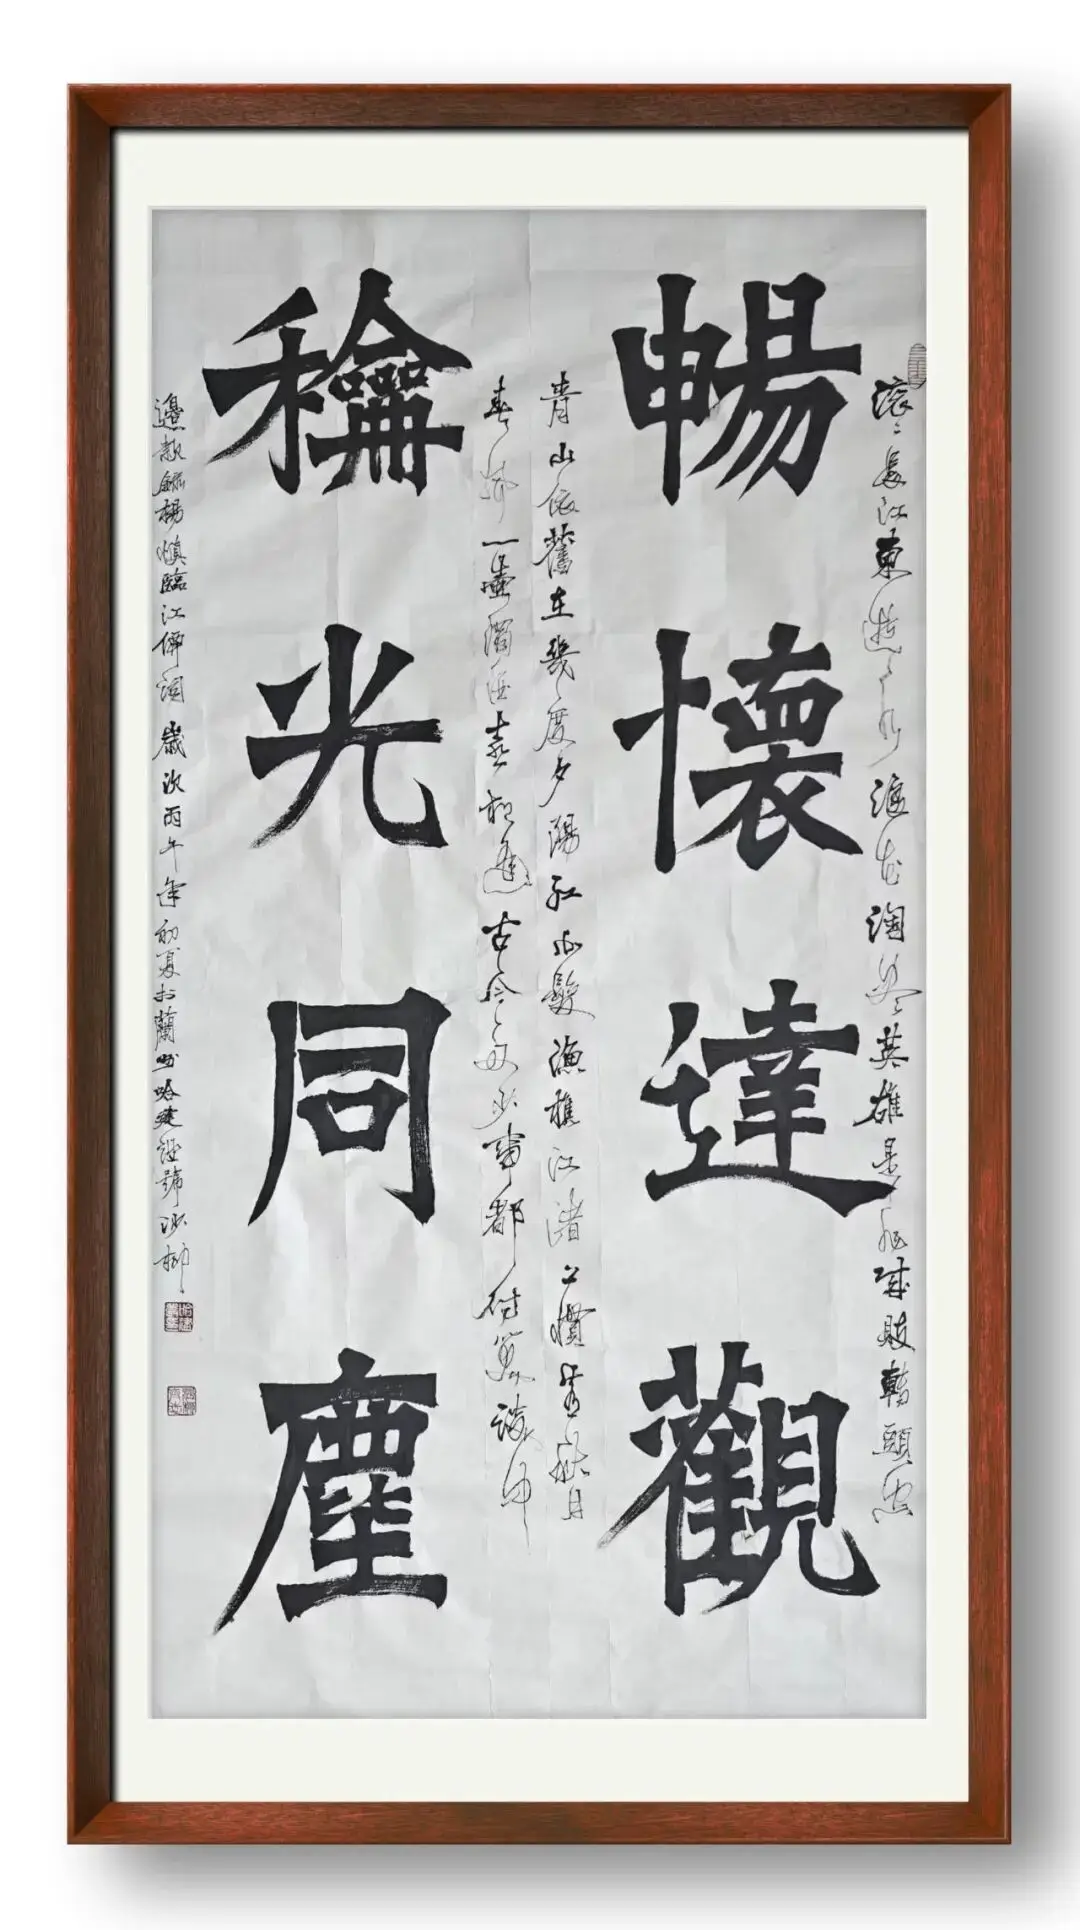 滚滚長江東逝水浪花淘盡英雄是非成敗轉頭空
暢懷達觀
青山依舊在幾度夕陽紅白髮漁樵江渚上慣看秋月
春風一壺濁酒喜相逢古今多少事都付笑談中
龢光同塵
邊款錄楊慎臨江僊詞歲次丙午年初夏於蘭州哈建設號沙柳